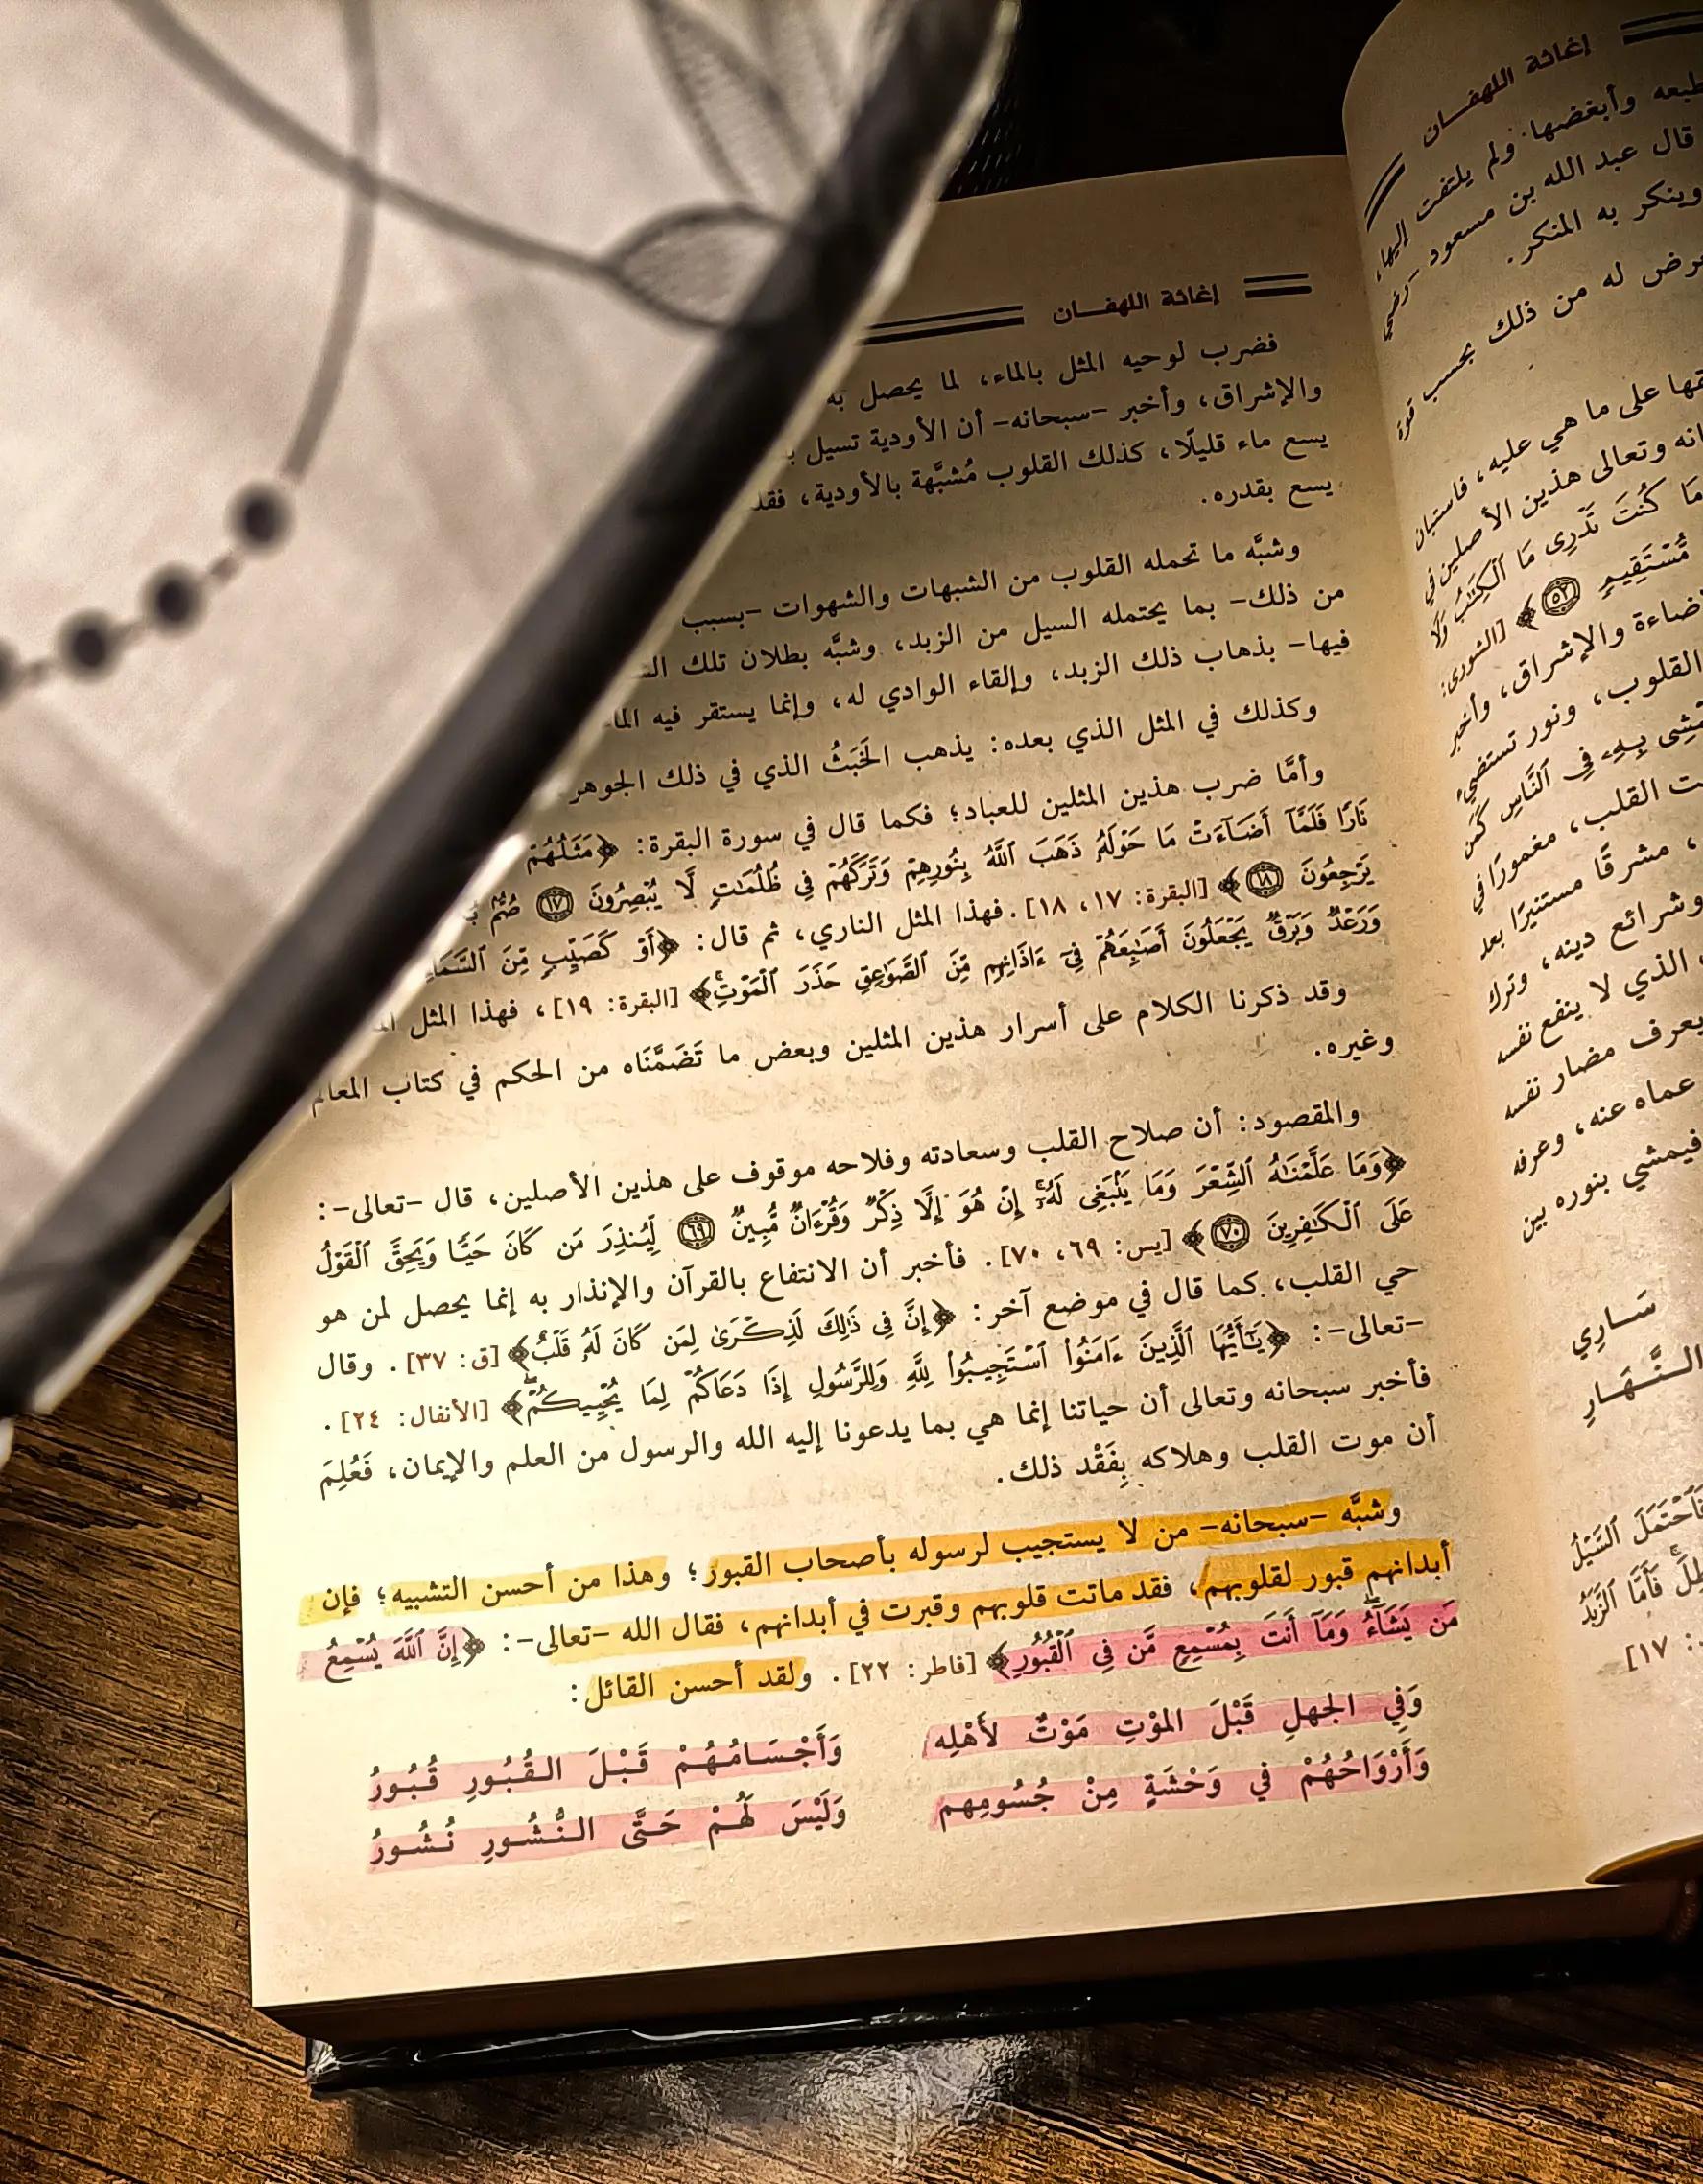 إغاثة اللهفـان
طبعه وأبغضها ولم يلتفت إليها،
قال عبد الله بن مسعود -رضي
وينكر به المنكر.
له من ذلك بحسب قوة
على ما هي عليه، فاستبان
وتعالى هذين الأصلين في
مَا كُنتَ تَدْرِى مَا ٱلْكِتَٰبُ وَلَا
مُّسْتَقِيمٍ ٥٢﴾ [الشورى:
والإشراق، وأخبر
القلوب، ونور تستضيء
بِهِۦ فِى ٱلنَّاسِ كَمَن
القلب، مغمورًا في
، مشرقًا مستنيرًا بعد
وشرائع دينه، وترك
الذي لا ينفع نفسه
يعرف مضار نفسه
عماه عنه، وعرفه
فيمشي بنوره بين
سَـارِي
الـنَّـهَـارِ
فَٱحْتَمَلَ ٱلسَّيْلُ
فَأَمَّا ٱلزَّبَدُ
١٧]
إغاثة اللهفـان
فضرب لوحيه المثل بالماء، لما يحصل به
والإشراق، وأخبر -سبحانه- أن الأودية تسيل
يسع ماء قليلًا، كذلك القلوب مُشبَّهة بالأودية، فقد
يسع بقدره.
وشبَّه ما تحمله القلوب من الشبهات والشهوات -بسبب
من ذلك- بما يحتمله السيل من الزبد، وشبَّه بطلان تلك
فيها- بذهاب ذلك الزبد، وإلقاء الوادي له، وإنما يستقر فيه
وكذلك في المثل الذي بعده: يذهب الخَبَثُ الذي في ذلك الجوهر
وأمَّا ضرب هذين المثلين للعباد؛ فكما قال في سورة البقرة: ﴿مَثَلُهُمْ
نَارًا فَلَمَّآ أَضَآءَتْ مَا حَوْلَهُۥ ذَهَبَ ٱللَّهُ بِنُورِهِمْ وَتَرَكَهُمْ فِى ظُلُمَٰتٍ لَّا يُبْصِرُونَ ١٧ صُمٌّۢ
يَرْجِعُونَ ١٨﴾ [البقرة: ١٧، ١٨]. فهذا المثل الناري، ثم قال: ﴿أَوْ كَصَيِّبٍ مِّنَ ٱلسَّمَآءِ
وَرَعْدٌ وَبَرْقٌ يَجْعَلُونَ أَصَٰبِعَهُمْ فِىٓ ءَاذَانِهِم مِّنَ ٱلصَّوَٰعِقِ حَذَرَ ٱلْمَوْتِۚ﴾ [البقرة: ١٩]، فهذا المثل
وقد ذكرنا الكلام على أسرار هذين المثلين وبعض ما تَضَمَّنَاه من الحكم في كتاب المعالم
وغيره.
والمقصود: أن صلاح القلب وسعادته وفلاحه موقوف على هذين الأصلين، قال -تعالى-:
﴿وَمَا عَلَّمْنَٰهُ ٱلشِّعْرَ وَمَا يَنۢبَغِى لَهُۥٓۚ إِنْ هُوَ إِلَّا ذِكْرٌ وَقُرْءَانٌ مُّبِينٌ ٦٩ لِّيُنذِرَ مَن كَانَ حَيًّا وَيَحِقَّ ٱلْقَوْلُ
عَلَى ٱلْكَٰفِرِينَ ٧٠﴾ [يس: ٦٩، ٧٠]. فأخبر أن الانتفاع بالقرآن والإنذار به إنما يحصل لمن هو
حي القلب، كما قال في موضع آخر: ﴿إِنَّ فِى ذَٰلِكَ لَذِكْرَىٰ لِمَن كَانَ لَهُۥ قَلْبٌ﴾ [ق: ٣٧]. وقال
-تعالى-: ﴿يَٰٓأَيُّهَا ٱلَّذِينَ ءَامَنُوا۟ ٱسْتَجِيبُوا۟ لِلَّهِ وَلِلرَّسُولِ إِذَا دَعَاكُمْ لِمَا يُحْيِيكُمْۖ﴾ [الأنفال: ٢٤].
فأخبر سبحانه وتعالى أن حياتنا إنما هي بما يدعونا إليه الله والرسول من العلم والإيمان، فَعُلِمَ
أن موت القلب وهلاكه بِفَقْد ذلك.
وشبَّه -سبحانه- من لا يستجيب لرسوله بأصحاب القبور؛ وهذا من أحسن التشبيه؛ فإن
أبدانهم قبور لقلوبهم، فقد ماتت قلوبهم وقبرت في أبدانهم، فقال الله -تعالى-: ﴿إِنَّ ٱللَّهَ يُسْمِعُ
مَن يَشَآءُۖ وَمَآ أَنتَ بِمُسْمِعٍ مَّن فِى ٱلْقُبُورِ﴾ [فاطر: ٢٢]. ولقد أحسن القائل:
وَفِي الجهلِ قَبْلَ الموْتِ مَوْتٌ لأَهْلِه وَأَجْسَـامُهُمْ قَبْلَ القُبُورِ قُبُورُ
وَأَرْوَاحُهُمْ في وَحْشَةٍ مِنْ جُسُومِهم وَلَيْسَ لَهُمْ حَتَّى النُّشُورِ نُشُورُ